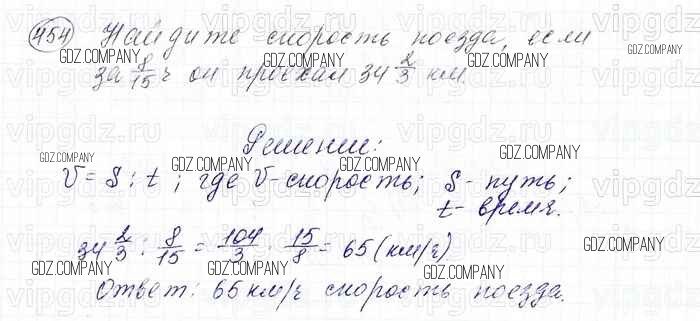 454 Найдите скорость поезда, если
за 8/15 ч он проехал 34 2/3 км.
Решение:
V = S : t ; где V - скорость; S - путь;
t - время.
34 2/3 : 8/15 = 104/3 · 15/8 = 65 (км/ч)
Ответ: 65 км/ч скорость поезда.